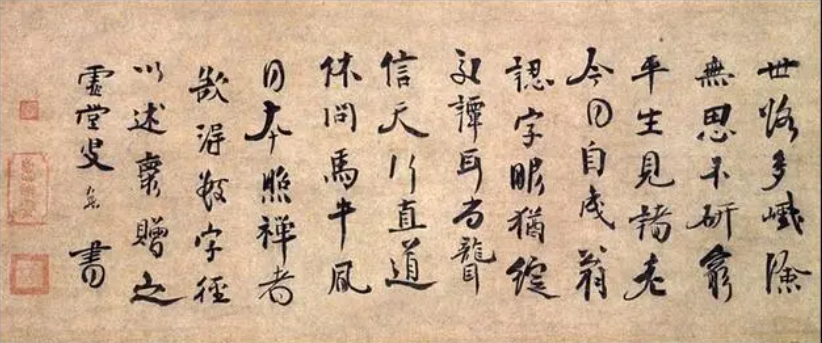 世路多巇嶮
無思不研窮
平生見諸老
今日自成翁
認字眼猶綻
交譚耳尚聾
信天行直道
休問馬牛風
日本照禅者
欲得数字徑
以述懐贈之
虚堂叟書